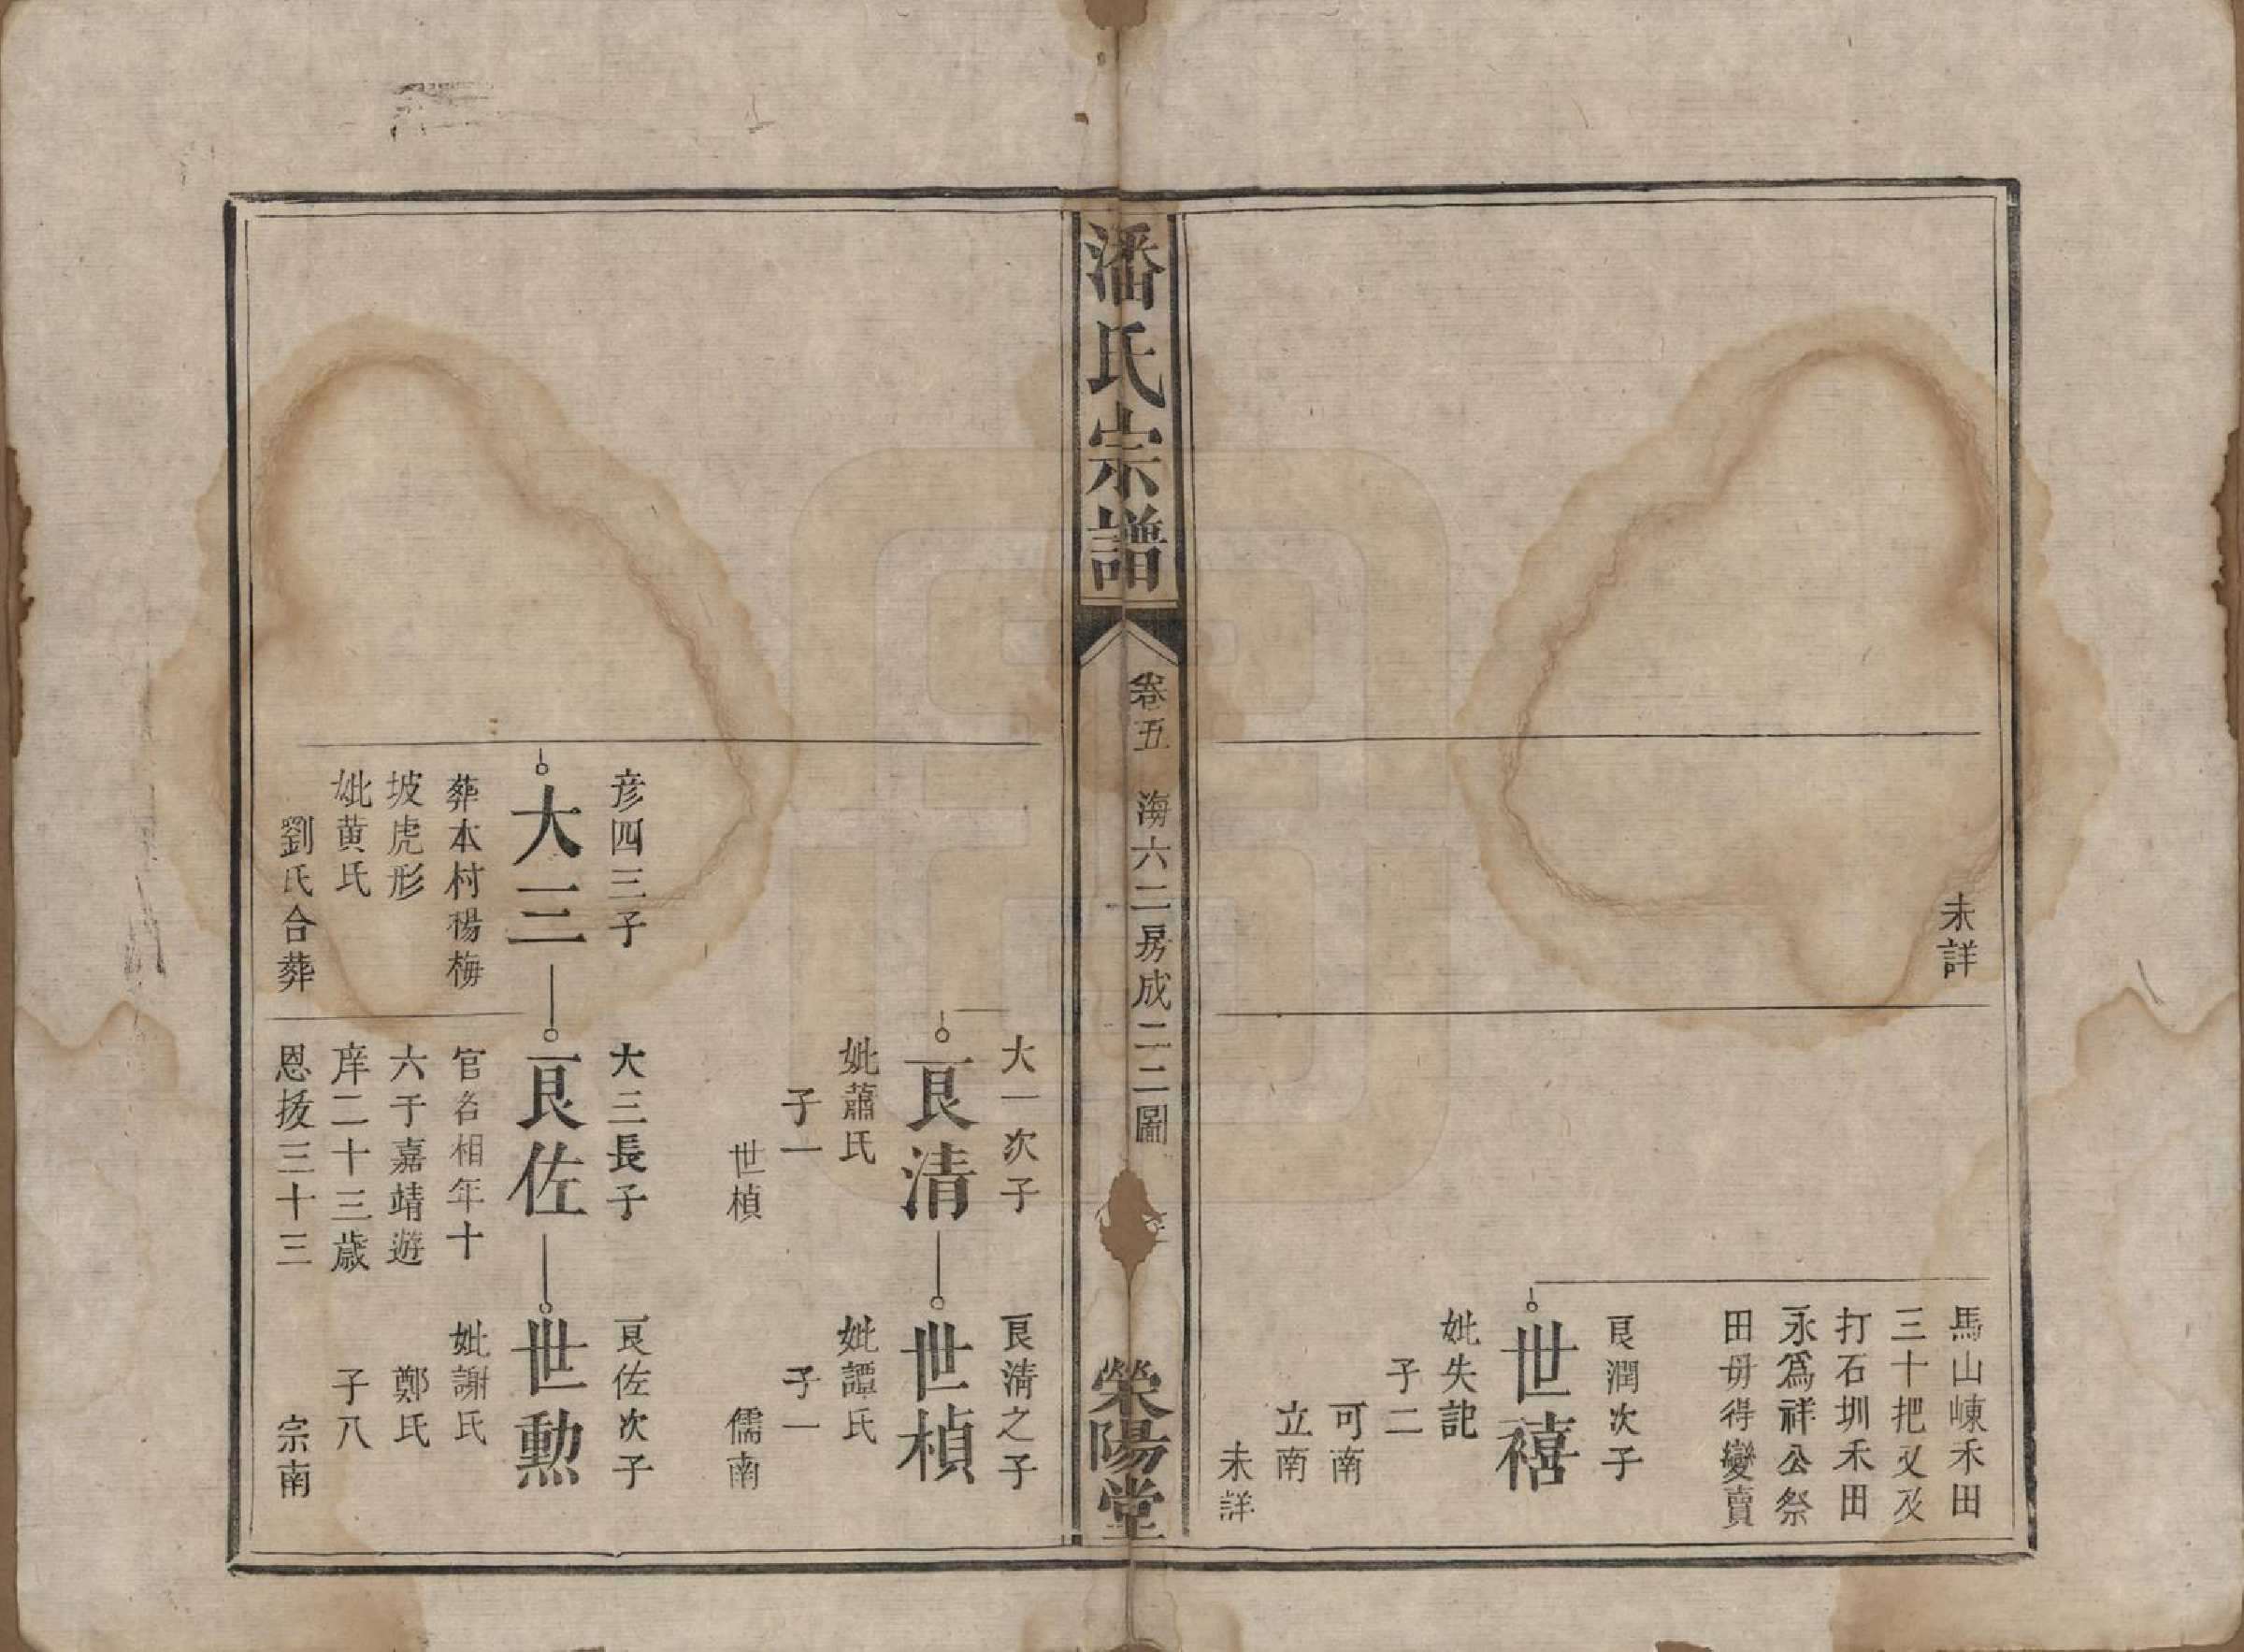 未詳
馬山崠禾田
三十把又及
打石圳禾田
永爲祥公祭
田毋得變賣
艮潤次子
世禧
妣失記
子二
可南
立南
未詳
潘氏宗譜
卷五
海六二房成二二圖
滎陽堂
大一次子
艮清
妣蕭氏
子一
世楨
艮清之子
世楨
妣譚氏
子一
儒南
彦四三子
大三
葬本村楊梅
坡虎形
妣黄氏
劉氏合葬
大三長子
艮佐
官名相年十
六于嘉靖遊
庠二十三歲
恩拔三十三
艮佐次子
世勲
妣謝氏
鄭氏
子八
宗南